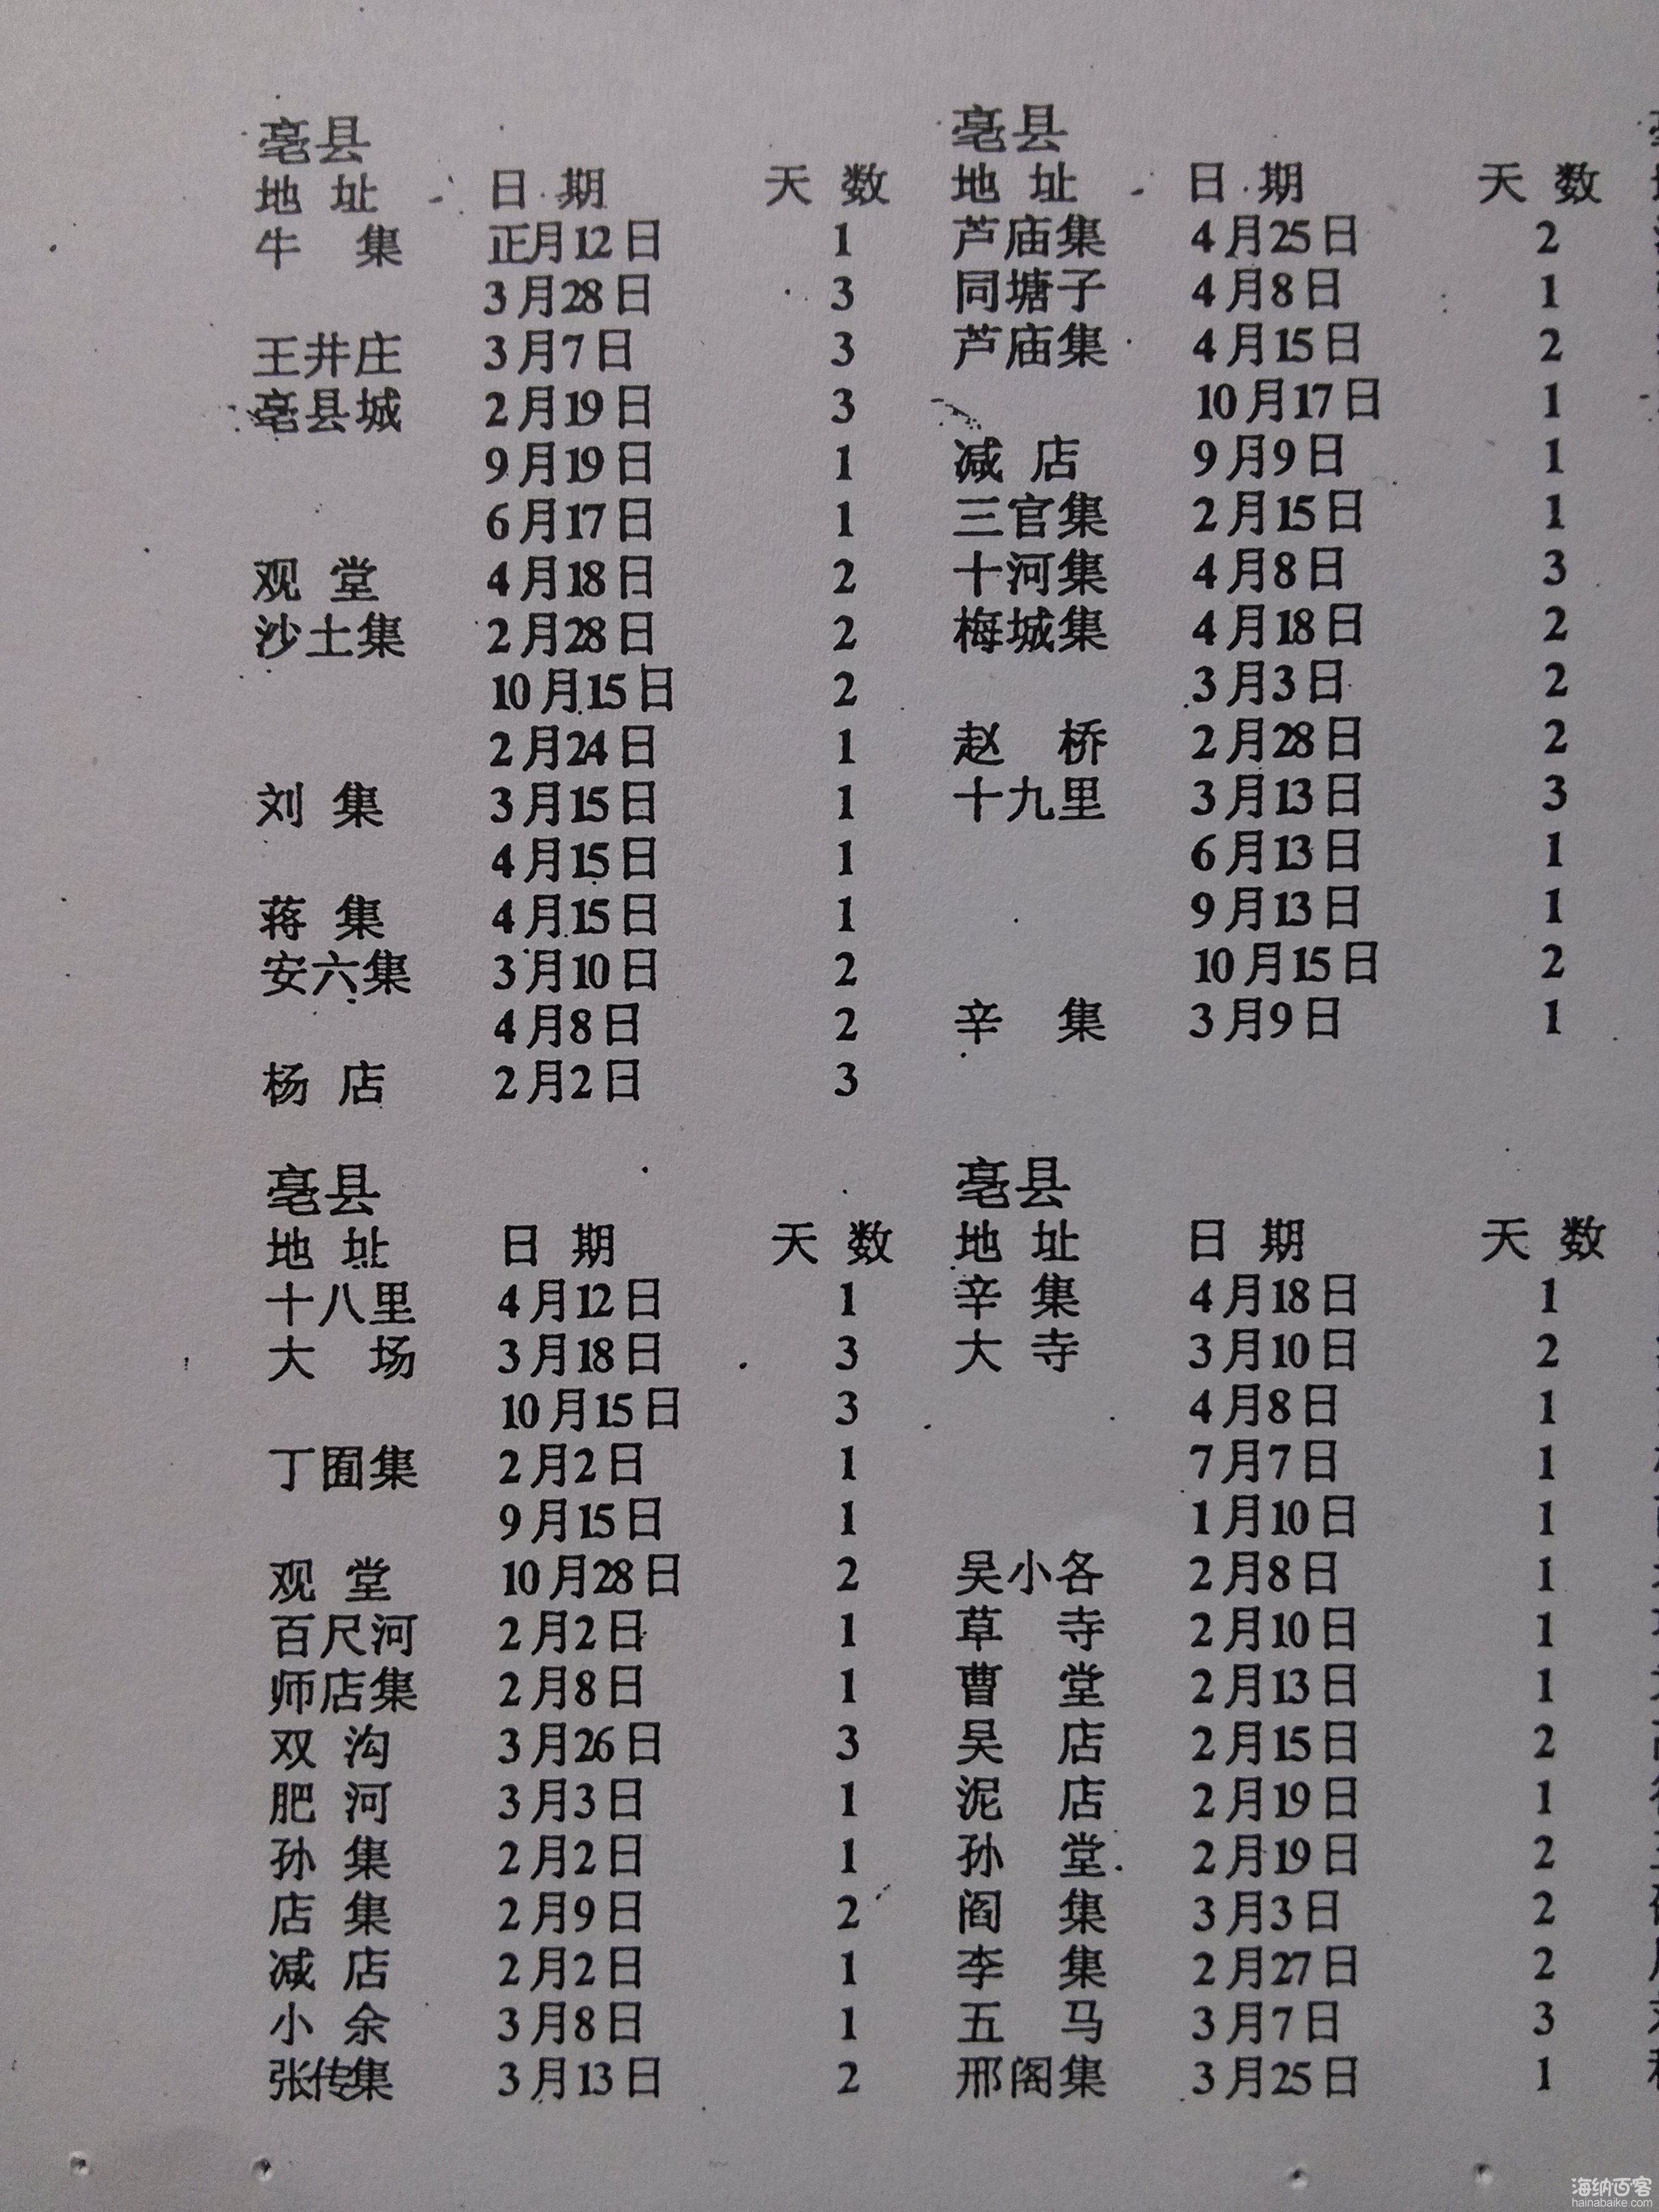 亳县
地 址 日 期 天 数
牛 集 正月12日 1
3月28日 3
王井庄 3月7日 3
亳县城 2月19日 3
9月19日 1
6月17日 1
观 堂 4月18日 2
沙土集 2月28日 2
10月15日 2
2月24日 1
刘 集 3月15日 1
4月15日 1
蒋 集 4月15日 1
安六集 3月10日 2
4月8日 2
杨 店 2月2日 3
亳县
地 址 日 期 天 数
芦庙集 4月25日 2
同塘子 4月8日 1
芦庙集 4月15日 2
10月17日 1
减 店 9月9日 1
三官集 2月15日 1
十河集 4月8日 3
梅城集 4月18日 2
3月3日 2
赵 桥 2月28日 2
十九里 3月13日 3
6月13日 1
9月13日 1
10月15日 2
辛 集 3月9日 1
亳县
地 址 日 期 天 数
十八里 4月12日 1
大 场 3月18日 3
10月15日 3
丁囿集 2月2日 1
9月15日 1
观 堂 10月28日 2
百尺河 2月2日 1
师店集 2月8日 1
双 沟 3月26日 3
肥 河 3月3日 1
孙 集 2月2日 1
店 集 2月9日 2
减 店 2月2日 1
小 余 3月8日 1
张传集 3月13日 2
亳县
地 址 日 期 天 数
辛 集 4月18日 1
大 寺 3月10日 2
4月8日 1
7月7日 1
1月10日 1
吴小各 2月8日 1
草 寺 2月10日 1
曹 堂 2月13日 1
吴 店 2月15日 2
泥 店 2月19日 1
孙 堂 2月19日 2
阎 集 3月3日 2
李 集 2月27日 2
五 马 3月7日 3
邢阁集 3月25日 1
海纳百客
hainabaike.com